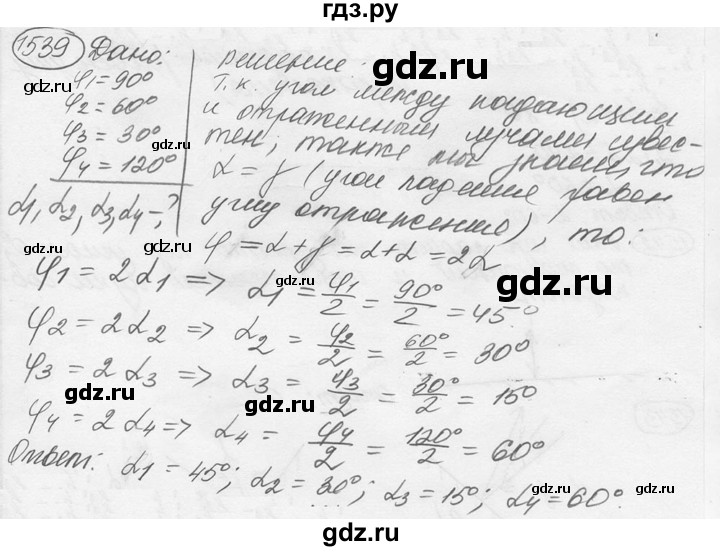 гдз.ру
1539 Дано:
φ1 = 90°
φ2 = 60°
φ3 = 30°
φ4 = 120°
α1, α2, α3, α4 - ?
Решение:
Т.к. угол между падающим
и отраженным лучами извес-
тен, также мы знаем, что
α = γ (угол падения равен
углу отражения), то:
φ = α + γ = α + α = 2α
φ1 = 2α1 => α1 = φ1/2 = 90°/2 = 45°
gdz.ru
φ2 = 2α2 => α2 = φ2/2 = 60°/2 = 30°
gdz.ru
φ3 = 2α3 => α3 = φ3/2 = 30°/2 = 15°
gdz.ru
gdz.ru
φ4 = 2α4 => α4 = φ4/2 = 120°/2 = 60°
Ответ: α1 = 45°; α2 = 30°; α3 = 15°; α4 = 60°.
gdz.ru